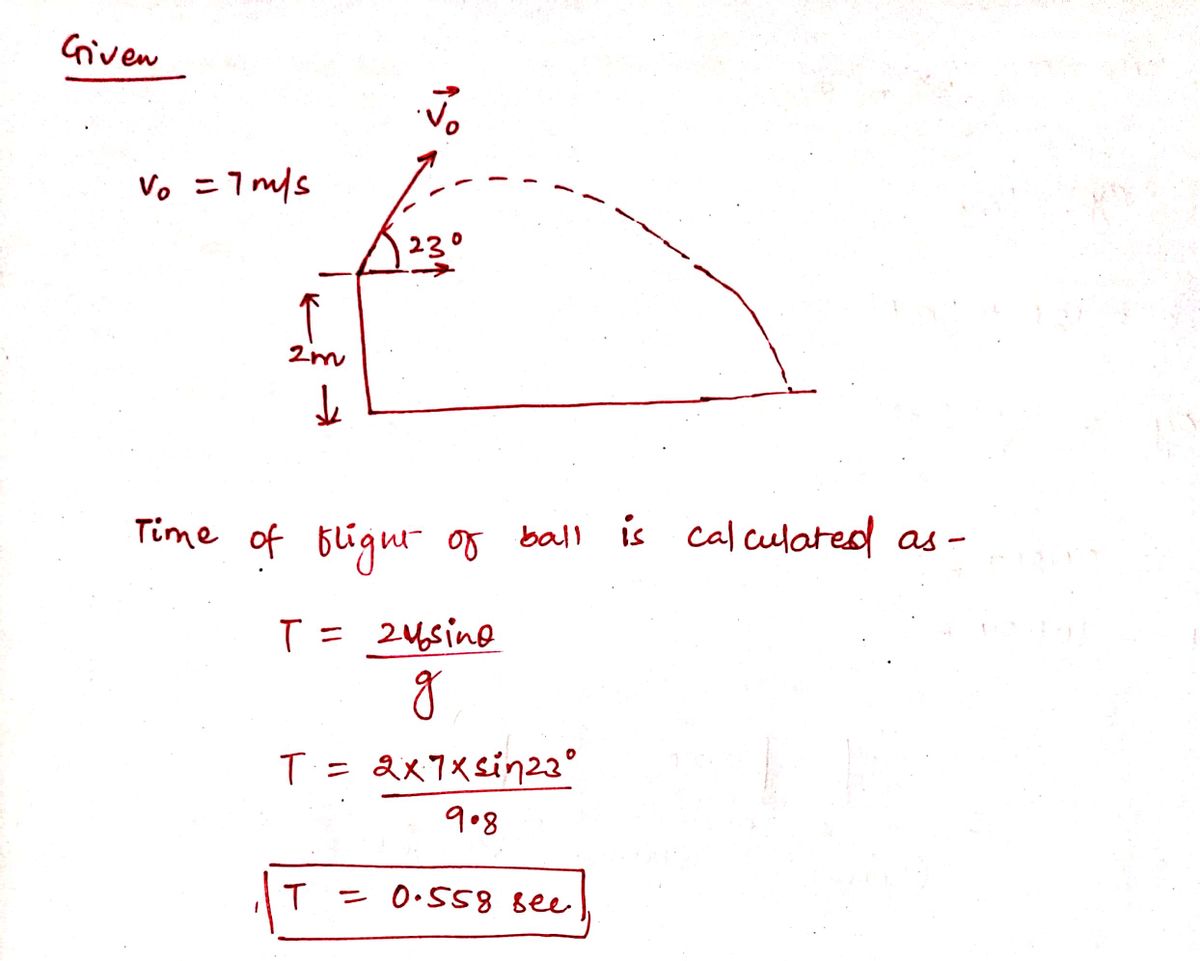 Given
V₀ = 7 m/s
V⃗₀
23°
2m
Time of flight of ball is calculated as -
T = 2V₀sinθ / g
T = 2×7×sin23° / 9.8
T = 0.558 sec.